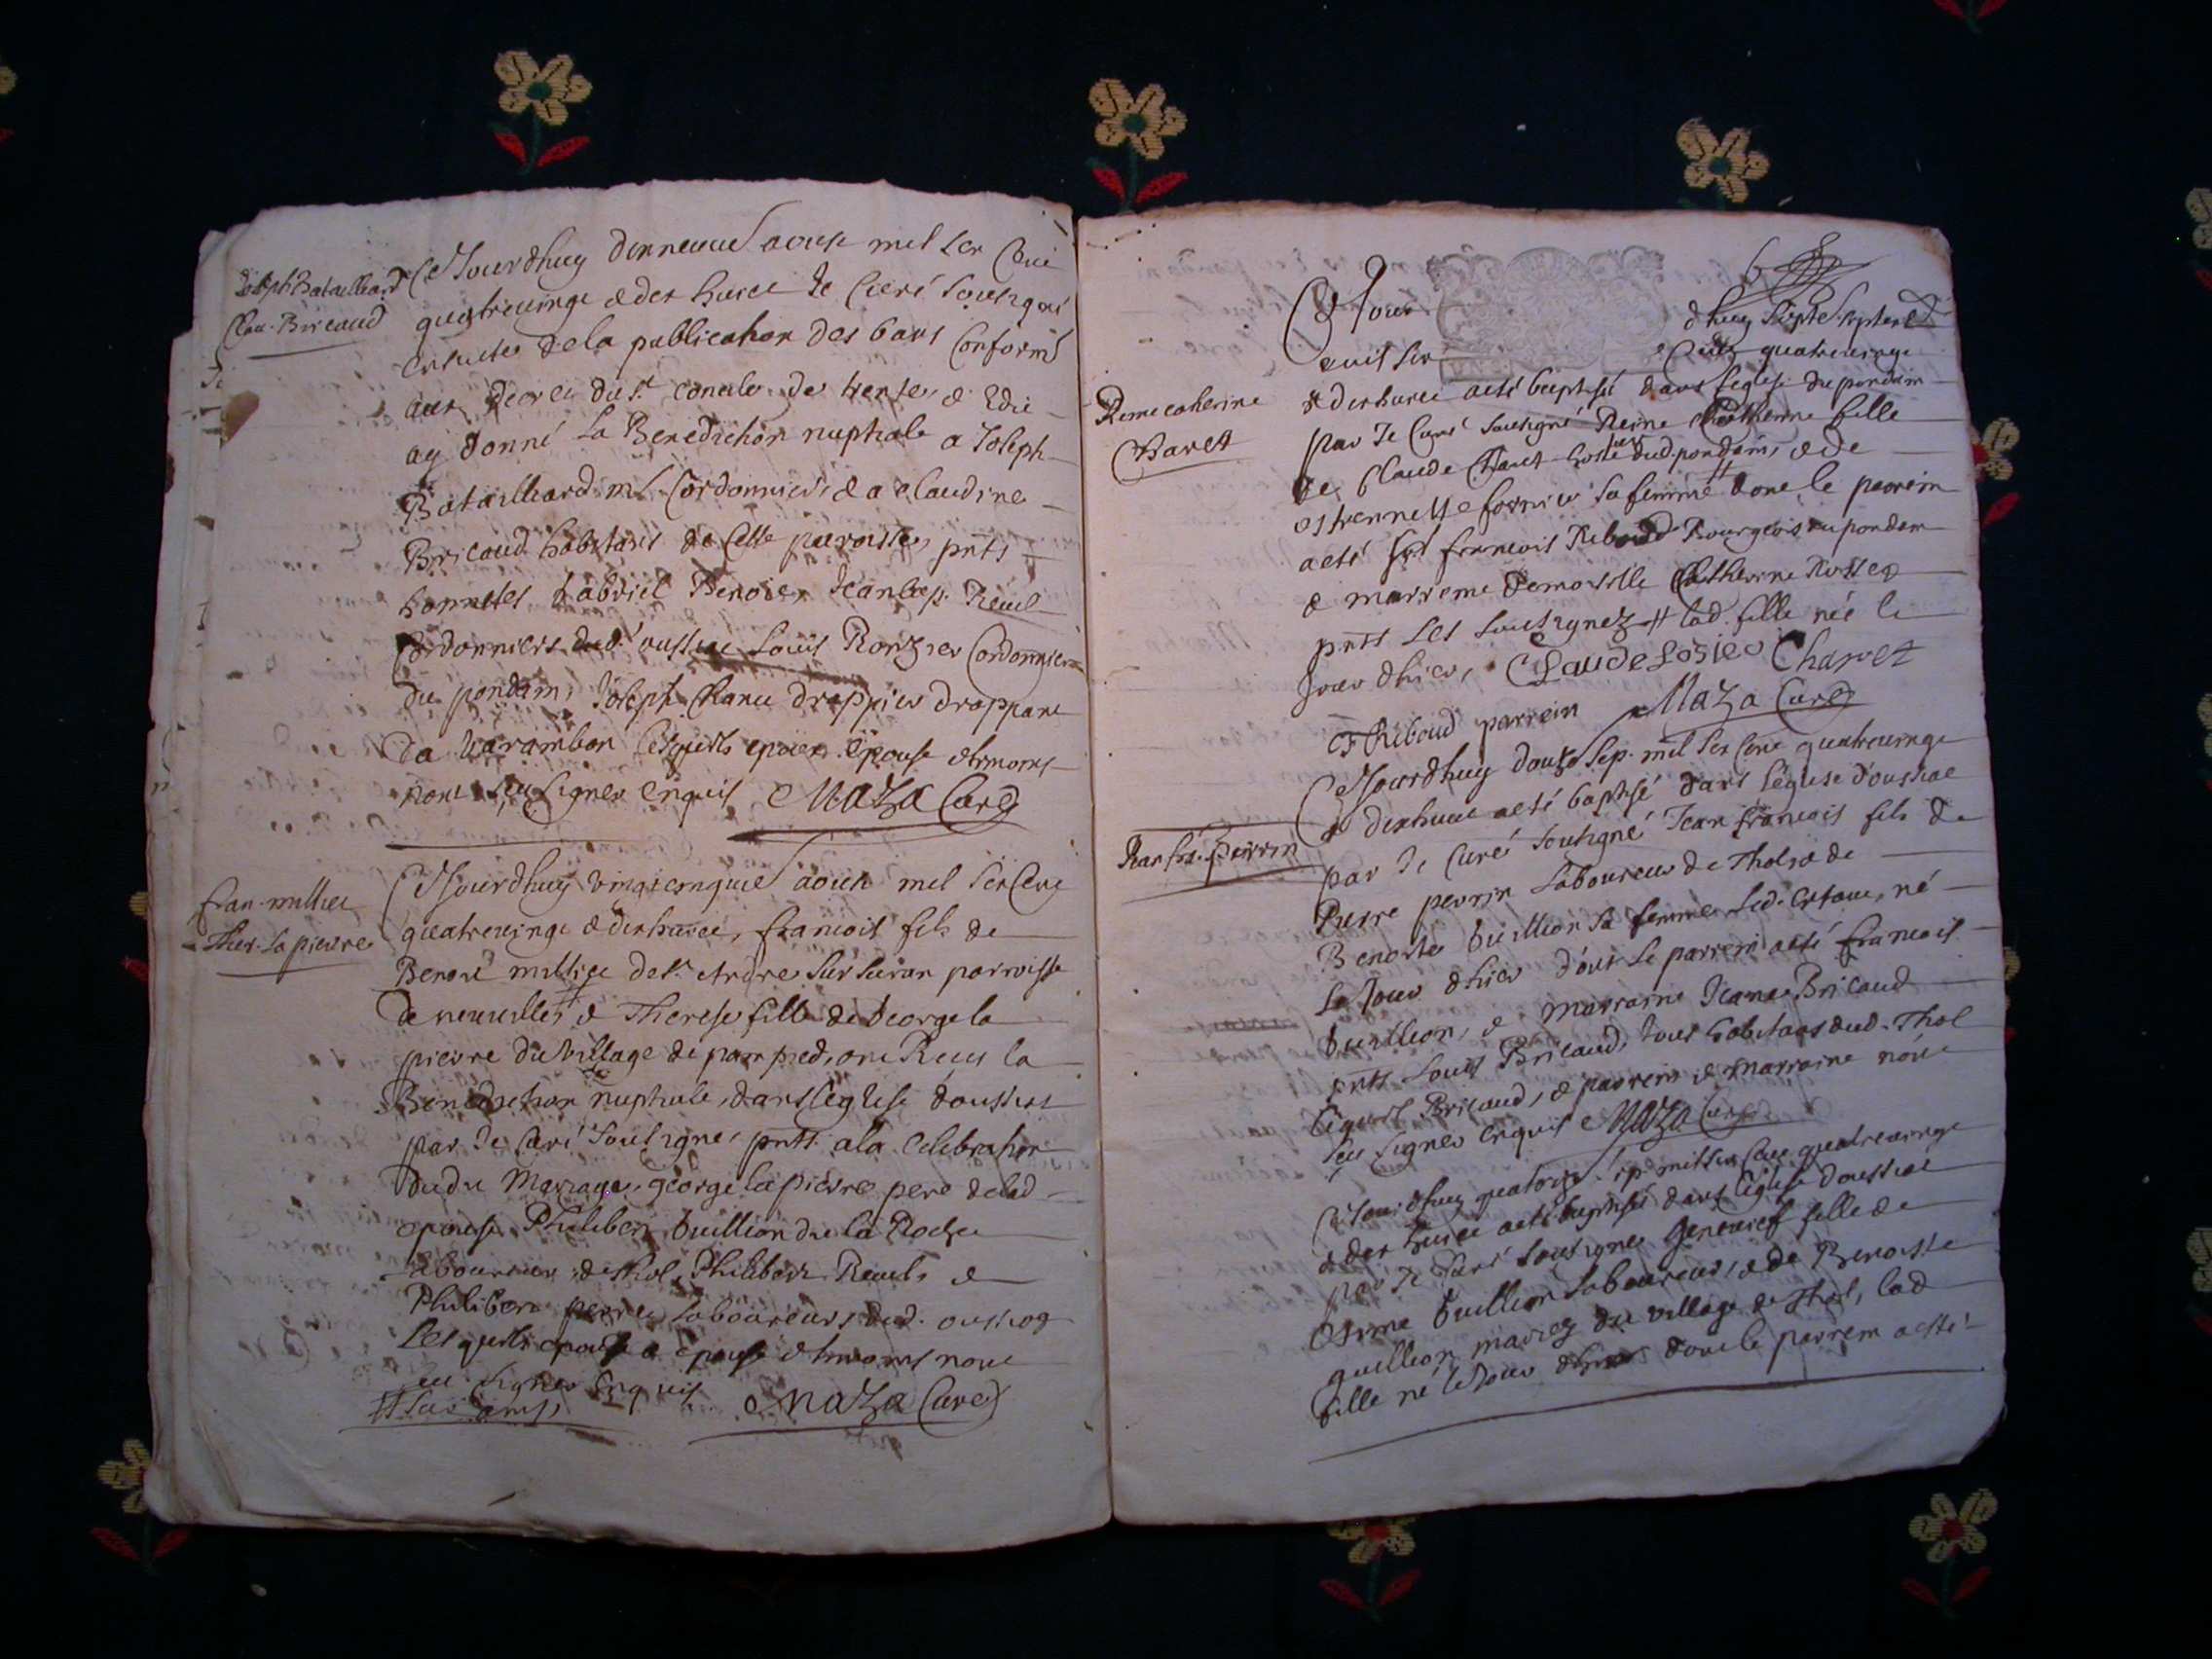 Joseph Batailliard
Clau. Bricaud
Cejourdhuy dixneuuie aoust mil six Cent
quatreuingt & dix huict Je Curé sousigné
ensuite de la publication des bans Conformé
aux decrets du St. concile de trente, &
ay donné la Benediction nuptiale a Joseph
Batailliard mr. Cordonnier, & a Claudine
Bricaud habitants de Cette paroisse, pnts
honnetes Gabriel Benoit, Jean bap. Reuel
Cordonniers dud. oussiat Louis Ronzier Cordonnier
du pondain, Joseph Chanu drappier drappant
de Varambon Lesquels epoux epouse & temoins
nont sceu signer enquis Maza Curé
fran. millier
Ther. la pierre
Cejourdhuy vingtcinquie aoust mil six Cent
quatreuingt & dixhuict, francois fils de
Benoit millier de St. Andre sur Suran parroisse
de neuuille, & Therese fille de George la
pierre du village de pampied, ont Receu la
Benediction nuptiale, dans leglise doussiat
par Je Curé sousigné, pnts a la Celebration
dudit Mariage, george la pierre pere de lad
epouse, Philibert Vuillion de la Roche
laboureur de Thol, Philibert Reuel, &
Philibert perret laboureurs dud. oussiat
Lesquels epoux & epouse & temoins nont
sceu signer Enquis Maza Curé
6
Ce Jour dhuy sept septembre
mil six Cents quatreuingt
Reine catherine
Charet
& dixhuict a esté baptisée dans leglise du pondain
par Je Curé sousigné Reine Catherine fille
de Claude Charet hoste dud. pondain, & de
estiennette fornier sa femme dont le parrein
a esté Sr. francois Riboud Bourgeois du pondain
& marreine Demoiselle Catherine Rosset
pnts les sousignez lad. fille née le
jour dhier, Claude Losier Charvet
F Riboud parrein Maza Curé
Jean frs. perrin
Cejourdhuy douze sep. mil six Cent quatreuingt
& dixhuict a esté baptisé dans leglise d'oussiat
par Je Curé sousigné Jean francois fils de
Pierre perrin laboureur de Thol & de
Benoite Vuillion sa femme led. enfant, né
le jour dhier dont le parrein a esté francois
Vuillion, & marraine Jeanne Bricaud
pnts Louis Bricaud, tous habitans dud. Thol
Lequel Bricaud, & parrein & marraine nont
sceu signer enquis Maza Curé
Cejourdhuy quatorze sep. mil six Cent quatreuingt
& dix huict a esté baptisée dans leglise doussiat
par Je Curé sousigné Geneuief fille de
Vuillion laboureur, & de Benoiste
guillion mariez du village de Thol, lad
fille né le jour dhier dont le parrein a esté